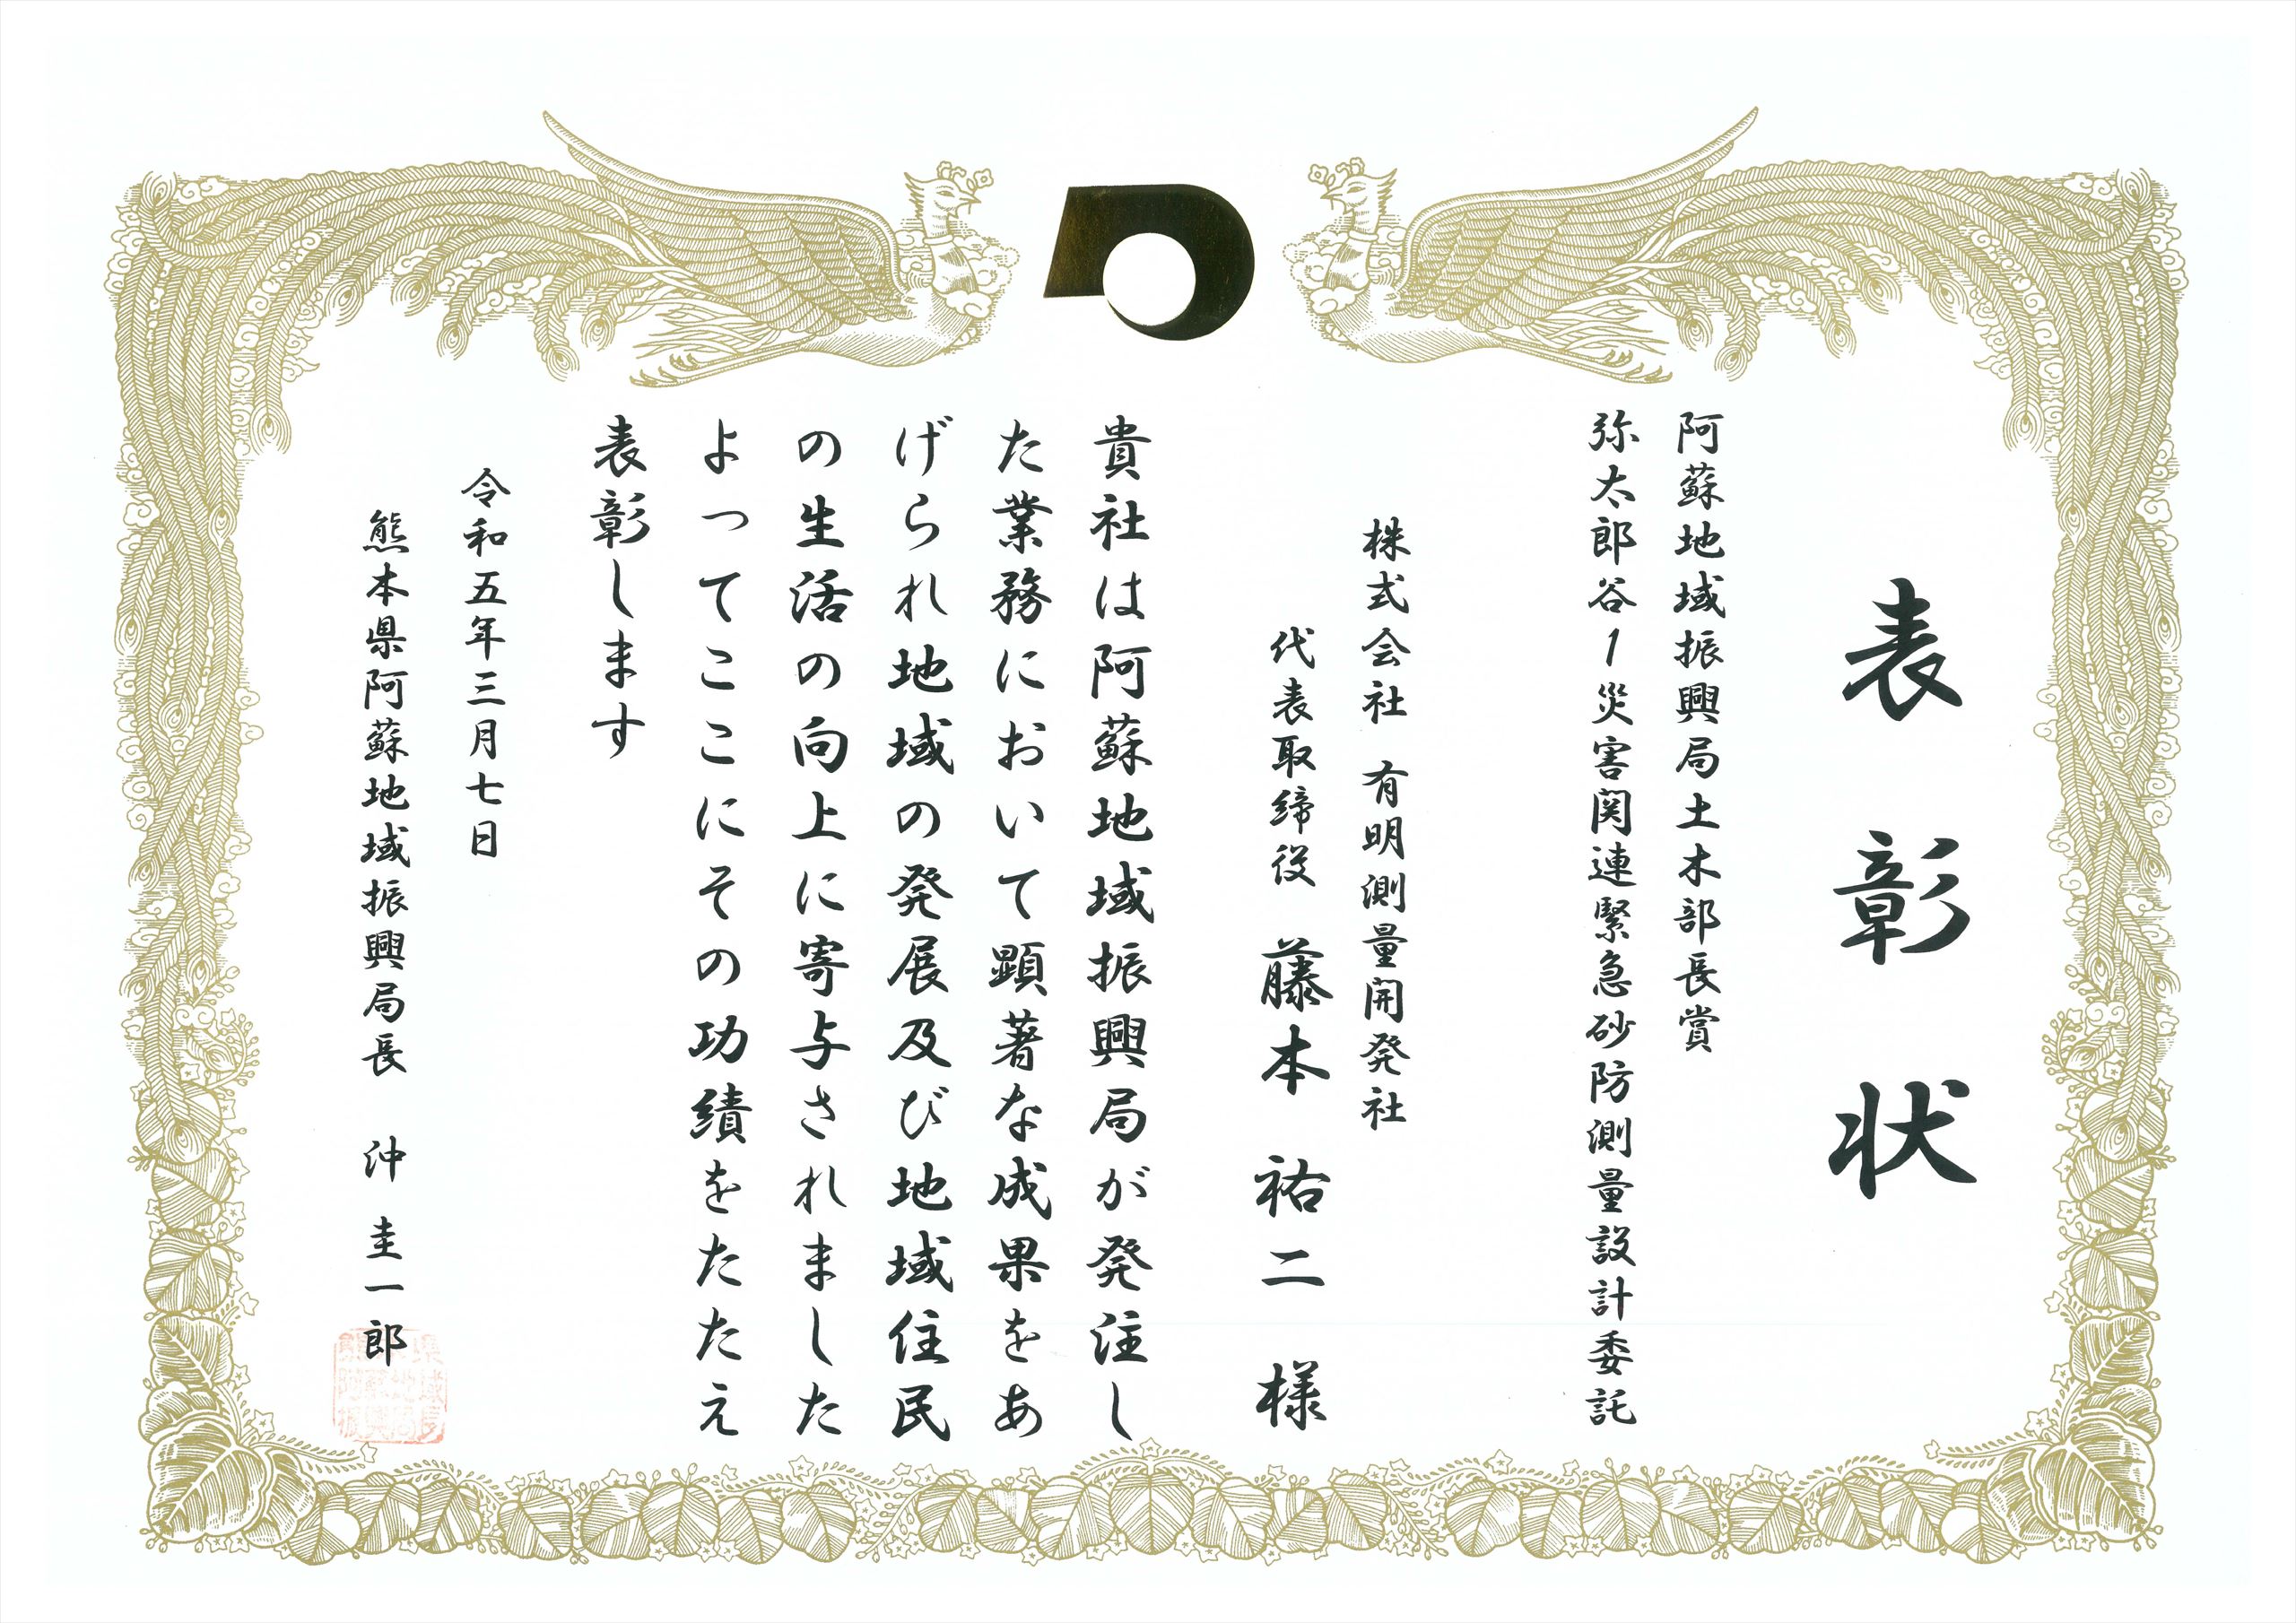 表彰状
阿蘇地域振興局土木部長賞
弥太郎谷1災害関連緊急砂防測量設計委託
株式会社 有明測量開発社
代表取締役 藤本 祐二 様
貴社は阿蘇地域振興局が発注し
た業務において顕著な成果をあ
げられ地域の発展及び地域住民
の生活の向上に寄与されました
よってここにその功績をたたえ
表彰します
令和五年三月七日
熊本県阿蘇地域振興局長 沖 圭一郎